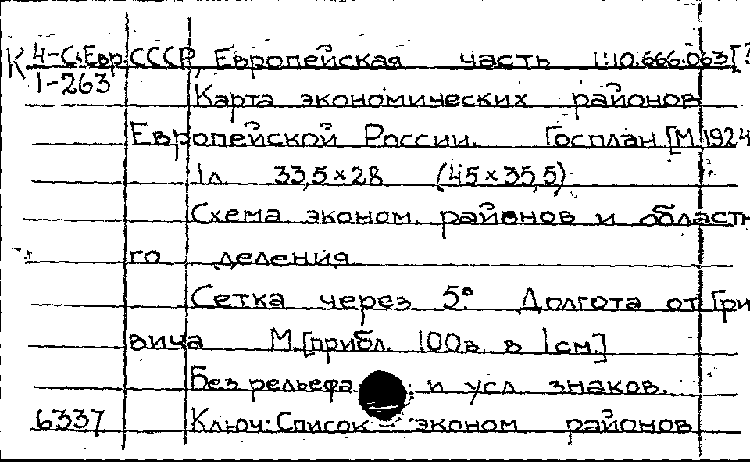 К 4-С.Евр СССР, Европейская часть 1:10.666.063[?
1-263
Карта экономических районов
Европейской России. Госплан [М. 1924
1л 33,5×28 (45×35,5)
Схема эконом. районов и областн
го деления
Сетка через 5° Долгота от Гри
вича М.[прибл. 100в. в 1см.]
Без рельефа и усл. знаков.
6337 Ключ: Список эконом районов